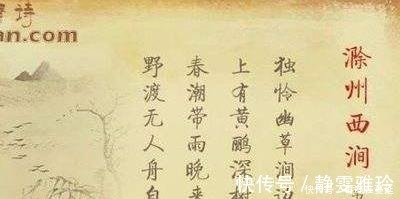 诗
an.com
滁州西涧
独怜幽草涧
上有黄鹂深树
春潮带雨晚来
野渡无人舟自
快传号/静雯雅玲